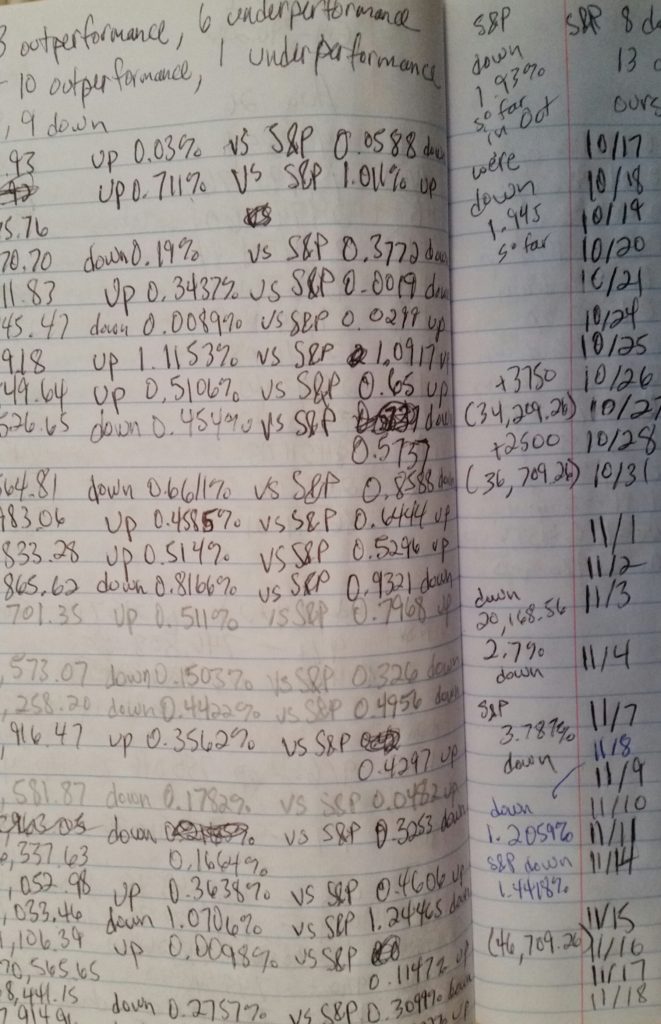 3 outperformance, 6 underperformance
- 10 outperformance, 1 underperformance
, 9 down
.93 up 0.03% vs S&P 0.0588 down
up 0.711% vs S&P 1.011% up
15.76
70.70 down 0.19% vs S&P 0.3772 down
11.83 up 0.3437% vs S&P 0.0019 down
45.47 down 0.0089% vs S&P 0.0299 up
918 up 1.1153% vs S&P 1.0917 up
49.64 up 0.5106% vs S&P 0.65 up
526.65 down 0.454% vs S&P down
0.5737
564.81 down 0.6611% vs S&P 0.8588 down
783.06 up 0.4585% vs S&P 0.6444 up
833.28 up 0.514% vs S&P 0.5296 up
865.62 down 0.8166% vs S&P 0.9321 down
701.35 up 0.511% vs S&P 0.7968 up
,573.07 down 0.1503% vs S&P 0.326 down
,258.20 down 0.4422% vs S&P 0.4956 down
,916.47 up 0.3562% vs S&P
0.4297 up
,581.87 down 0.1782% vs S&P 0.0482 up
down vs S&P 0.3253 down
,337.63 0.1664%
,052.98 up 0.3638% vs S&P 0.4606 up
,033.46 down 1.0706% vs S&P 1.24465 down
1,106.39 up 0.0098% vs S&P
70,565.65 0.1147% up
8,441.15 down 0.2757% vs S&P 0.3099% down
S&P S&P 8
down 13
1.93%
so far
in Oct ours
were 10/17
down 10/18
1.945 10/19
so far 10/20
10/21
10/24
10/25
+3750 10/26
(34,209.26) 10/27
+2500 10/28
(36,709.26) 10/31
11/1
11/2
down 11/3
20,168.56
2.7% 11/4
down
S&P 11/7
3.787% 11/8
down 11/9
down 11/10
1.2059% 11/11
S&P down 11/14
1.4418%
11/15
(46,709.26) 11/16
11/17
11/18